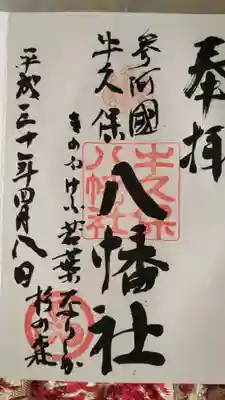 奉拝
参河國
牛久保
八幡社
牛久保
八幡社
きのふけふ若葉なりしか杉の森
平成三十年四月八日